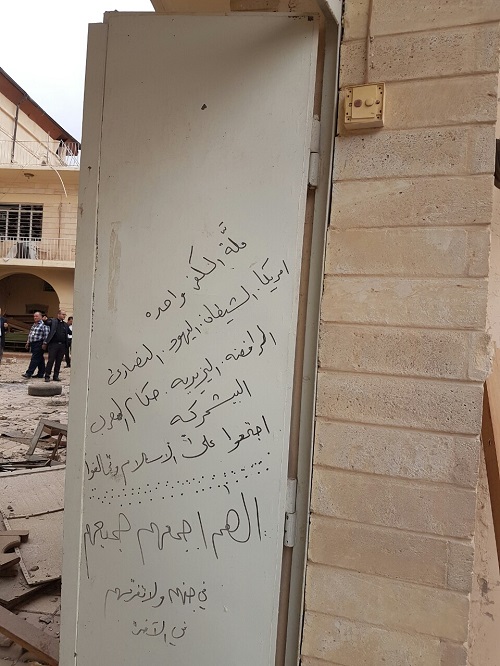 ملّة الكفر واحده
امريكا الشيطان اليهود النصارى
الرافضه اليزيديه حكام العرب
البيشمركه
اجتمعوا على الاسلام وتحالفوا
اللهم اجمعهم جميعهم
في جهنم ولا تفرقهم
في الآخرة